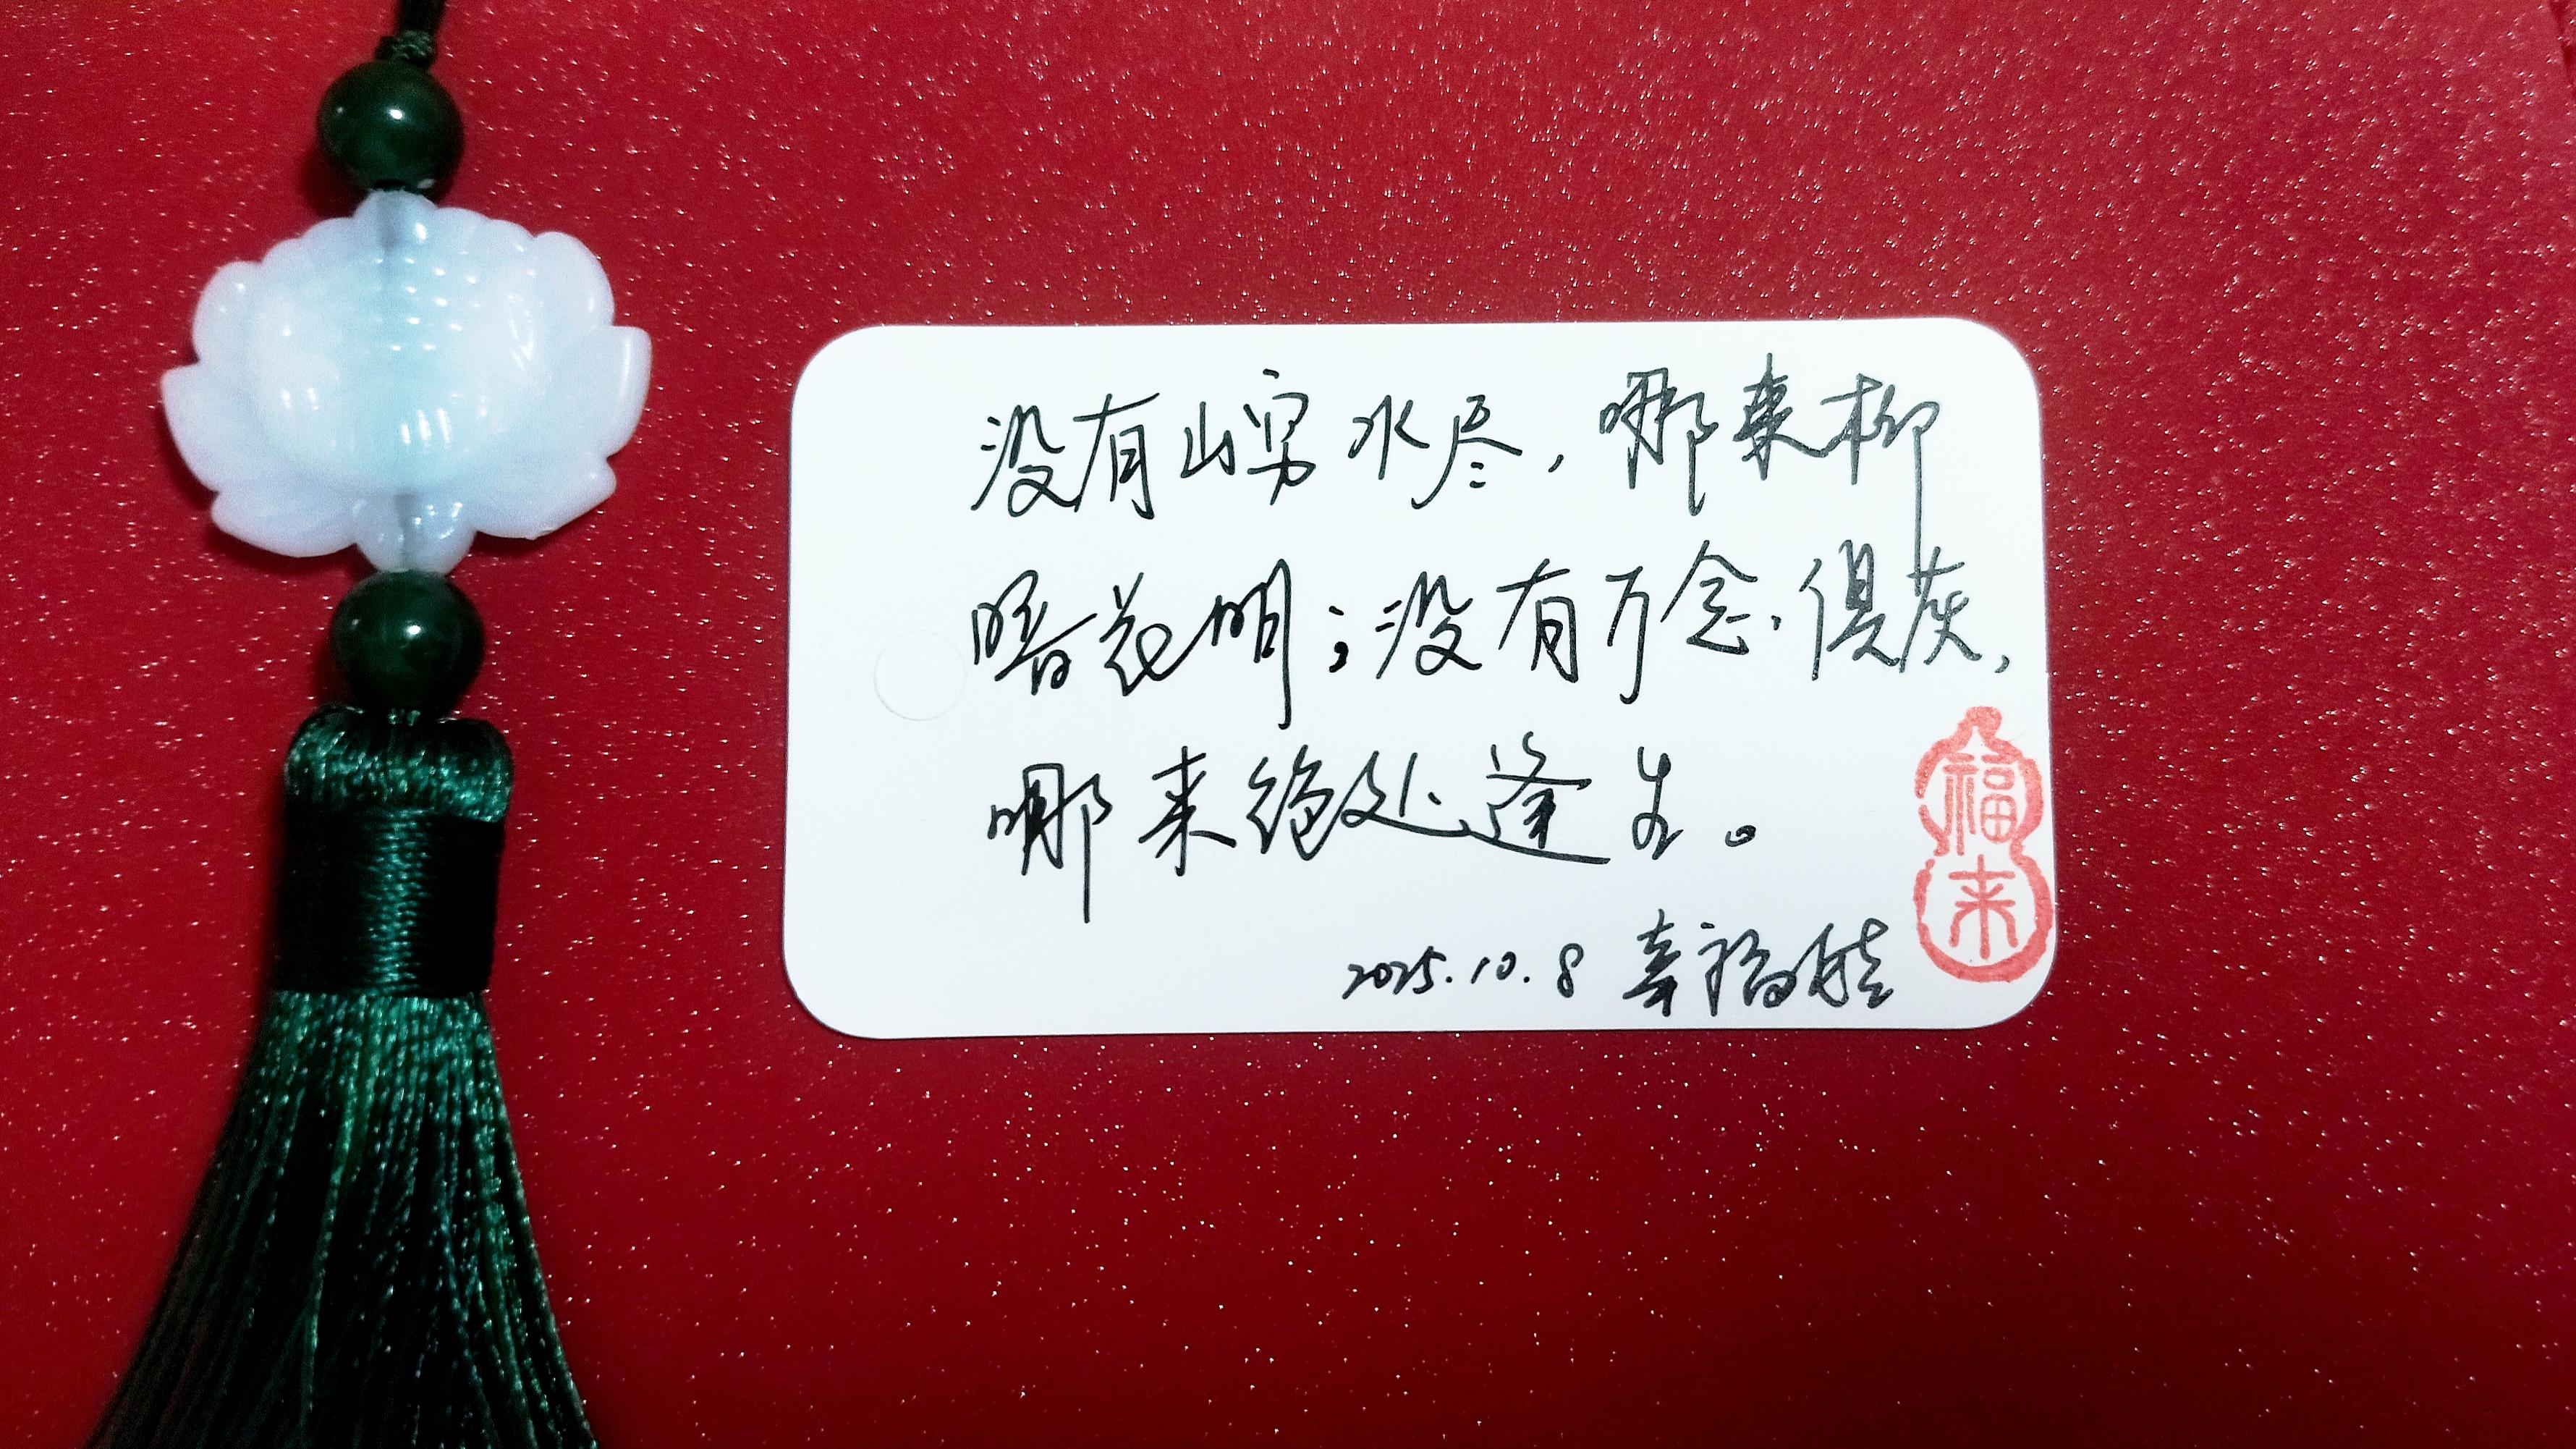 没有山穷水尽，哪来柳
暗花明；没有万念俱灰，
哪来绝处逢生。
2025.10.8 幸福
福来